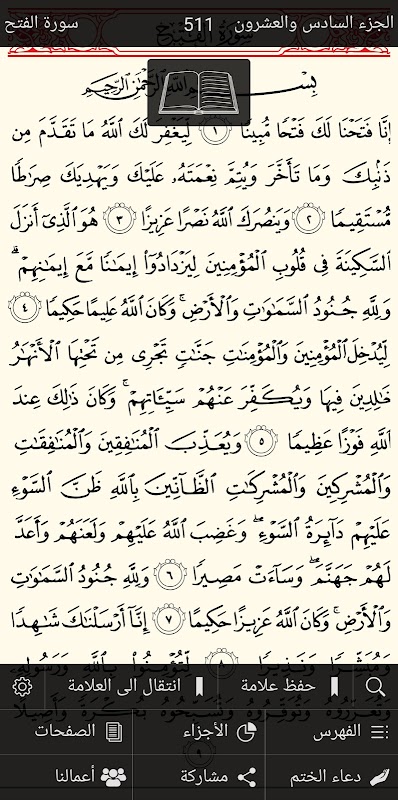 الجزء السادس والعشرون 511 سورة الفتح
بِسْمِ اللَّهِ الرَّحْمَٰنِ الرَّحِيمِ
إِنَّا فَتَحْنَا لَكَ فَتْحًا مُّبِينًا ١ لِّيَغْفِرَ لَكَ اللَّهُ مَا تَقَدَّمَ مِن
ذَنۢبِكَ وَمَا تَأَخَّرَ وَيُتِمَّ نِعْمَتَهُۥ عَلَيْكَ وَيَهْدِيَكَ صِرَٰطًا
مُّسْتَقِيمًا ٢ وَيَنصُرَكَ اللَّهُ نَصْرًا عَزِيزًا ٣ هُوَ الَّذِىٓ أَنزَلَ
السَّكِينَةَ فِى قُلُوبِ الْمُؤْمِنِينَ لِيَزْدَادُوٓا۟ إِيمَٰنًا مَّعَ إِيمَٰنِهِمْ ۗ
وَلِلَّهِ جُنُودُ السَّمَٰوَٰتِ وَالْأَرْضِ ۚ وَكَانَ اللَّهُ عَلِيمًا حَكِيمًا ٤
لِّيُدْخِلَ الْمُؤْمِنِينَ وَالْمُؤْمِنَٰتِ جَنَّٰتٍ تَجْرِى مِن تَحْتِهَا الْأَنْهَٰرُ
خَٰلِدِينَ فِيهَا وَيُكَفِّرَ عَنْهُمْ سَيِّـَٔاتِهِمْ ۚ وَكَانَ ذَٰلِكَ عِندَ
اللَّهِ فَوْزًا عَظِيمًا ٥ وَيُعَذِّبَ الْمُنَٰفِقِينَ وَالْمُنَٰفِقَٰتِ
وَالْمُشْرِكِينَ وَالْمُشْرِكَٰتِ الظَّآنِّينَ بِاللَّهِ ظَنَّ السَّوْءِ ۚ
عَلَيْهِمْ دَآئِرَةُ السَّوْءِ ۖ وَغَضِبَ اللَّهُ عَلَيْهِمْ وَلَعَنَهُمْ وَأَعَدَّ
لَهُمْ جَهَنَّمَ ۖ وَسَآءَتْ مَصِيرًا ٦ وَلِلَّهِ جُنُودُ السَّمَٰوَٰتِ
وَالْأَرْضِ ۚ وَكَانَ اللَّهُ عَزِيزًا حَكِيمًا ٧ إِنَّآ أَرْسَلْنَٰكَ شَٰهِدًا
وَمُبَشِّرًا وَنَذِيرًا ٨ لِّتُؤْمِنُوا۟ بِاللَّهِ وَرَسُولِهِۦ
حفظ علامة انتقال الى العلامة
وَتُعَزِّرُوهُ وَتُوَقِّرُوهُ وَتُسَبِّحُوهُ بُكْرَةً وَأَصِيلًا
الفهرس الأجزاء الصفحات
٩
دعاء الختم مشاركة أعمالنا